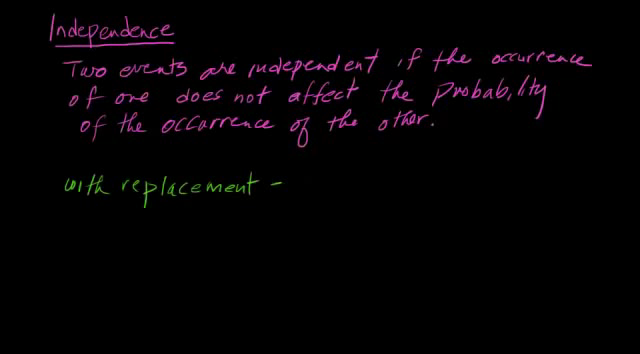 Independence
Two events are independent if the occurrence
of one does not affect the probability
of the occurrence of the other.
with replacement -